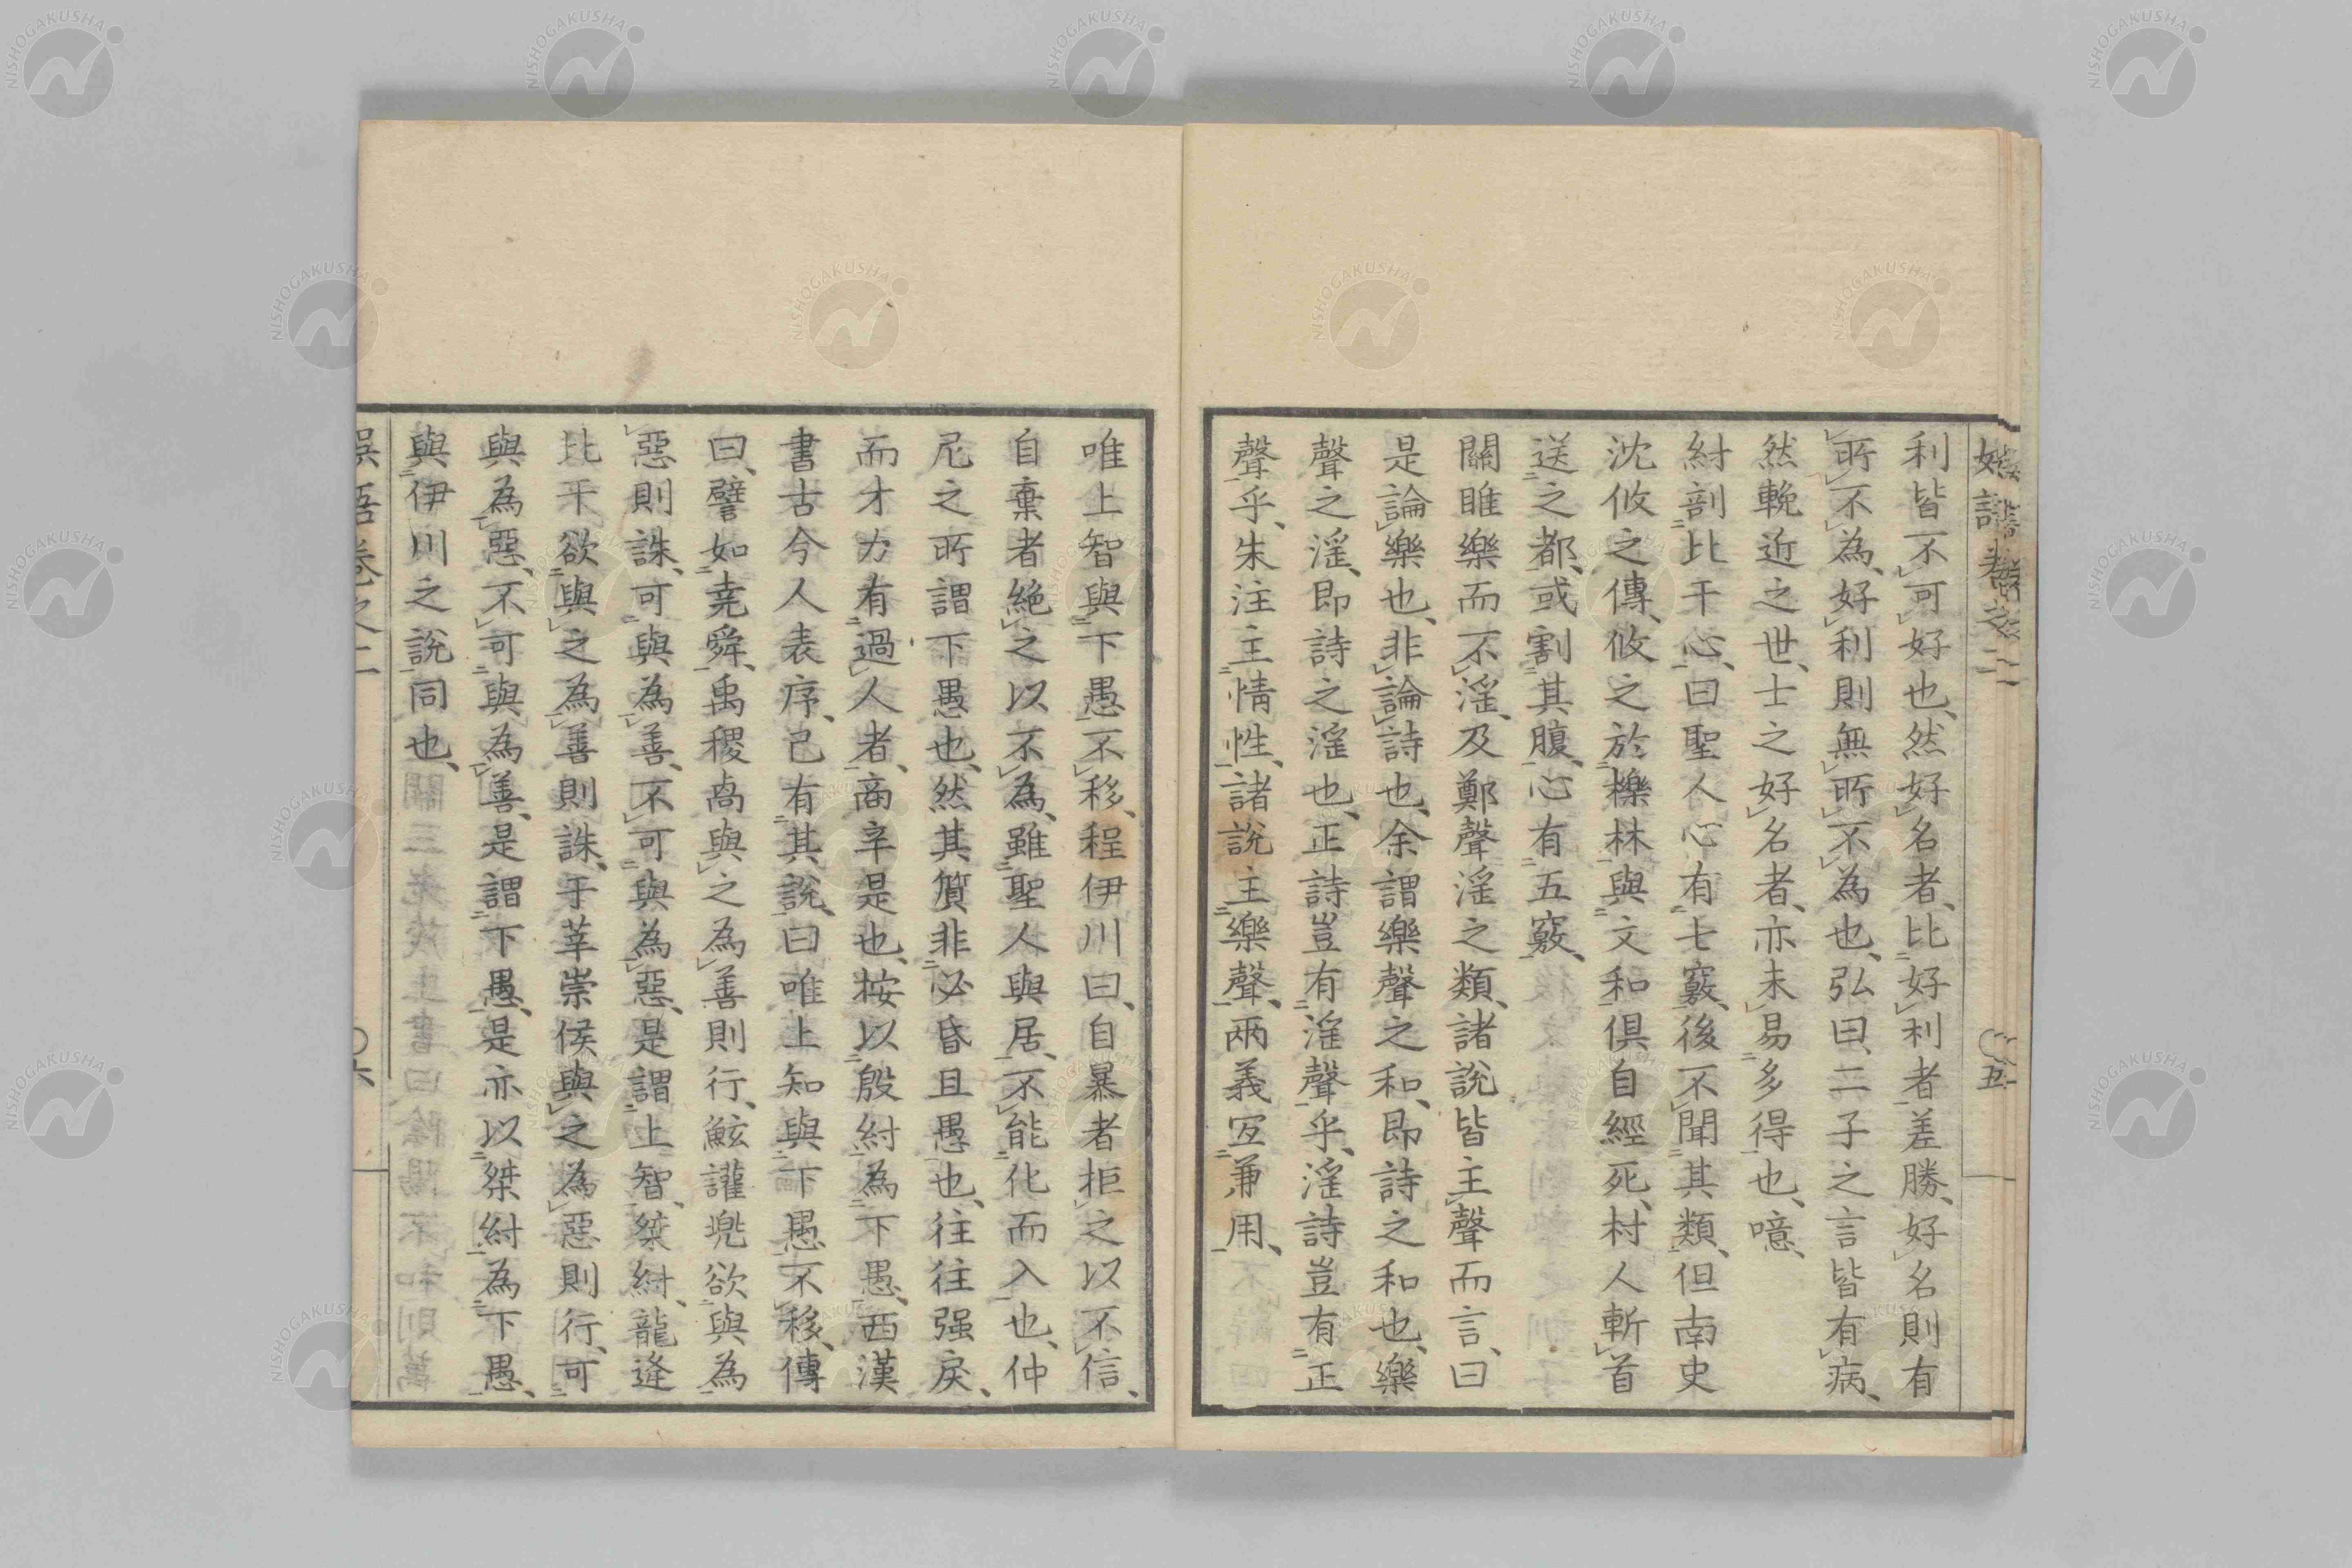 利皆不可好也、然好名者、比好利者差勝、好名則有
所不為、好利則無所不為也、弘曰、二子之言皆有病、
然輓近之世、士之好名者、亦未易多得也、噫、
紂剖比干心、曰聖人心有七竅、後不聞其類、但南史
沈攸之傳、攸之於櫟林與文和俱自經死、村人斬首
送之都、或割其腹、心有五竅、
關雎樂而不淫、及鄭聲淫之類、諸說皆主聲而言、曰
是論樂也、非論詩也、余謂樂聲之和、即詩之和也、樂
聲之淫、即詩之淫也、正詩豈有淫聲乎、淫詩豈有正
聲乎、朱注主情性、諸說主樂聲、兩義宜兼用、
唯上智與下愚不移、程伊川曰、自暴者拒之以不信、
自棄者絕之以不為、雖聖人與居、不能化而入也、仲
尼之所謂下愚也、然其質非必昏且愚也、往往强戾、
而才力有過人者、商辛是也、按以殷紂為下愚、西漢
書古今人表序、已有其說、曰唯上知與下愚不移、傳
曰、譬如堯舜、禹稷卨與之為善則行、鮌讙兜欲與為
惡則誅、可與為善、不可與為惡、是謂上智、桀紂、龍逢
比干欲與之為善則誅、于莘崇侯與之為惡則行、可
與為惡、不可與為善、是謂下愚、是亦以桀紂為下愚、
與伊川之說同也、
語卷之二
六